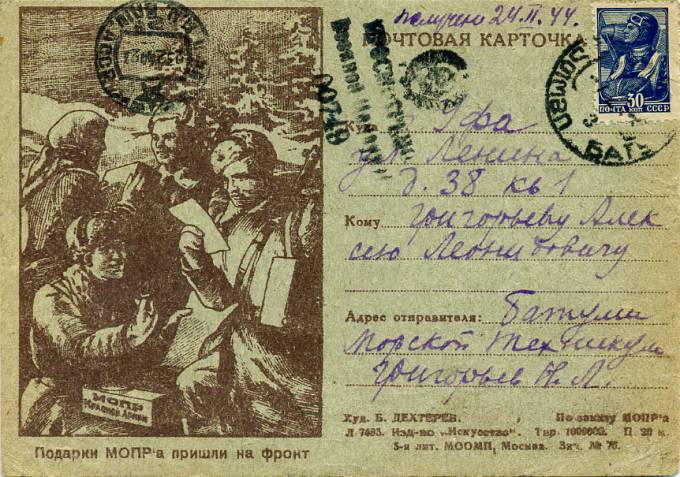 получено 24.II.44.
ПОЧТОВАЯ КАРТОЧКА
30
ПОЧТА КОП СССР
00749
Куда Уфа
ул. Ленина
д. 38 кв 1
Кому Григорьеву Алек
сею Леонидовичу
Адрес отправителя: Батуми
Морской Техникум
Григорьев Н. Л.
МОПР
КРАСНОЙ АРМИИ
Подарки МОПР'а пришли на фронт
Худ. Б. ДЕХТЕРЕВ. По заказу МОПР'а
Л 7693. Изд-во "Искусство". Тир. 1000000. П. 20 к.
5-я лит. МООМП, Москва. Зак. № 76.